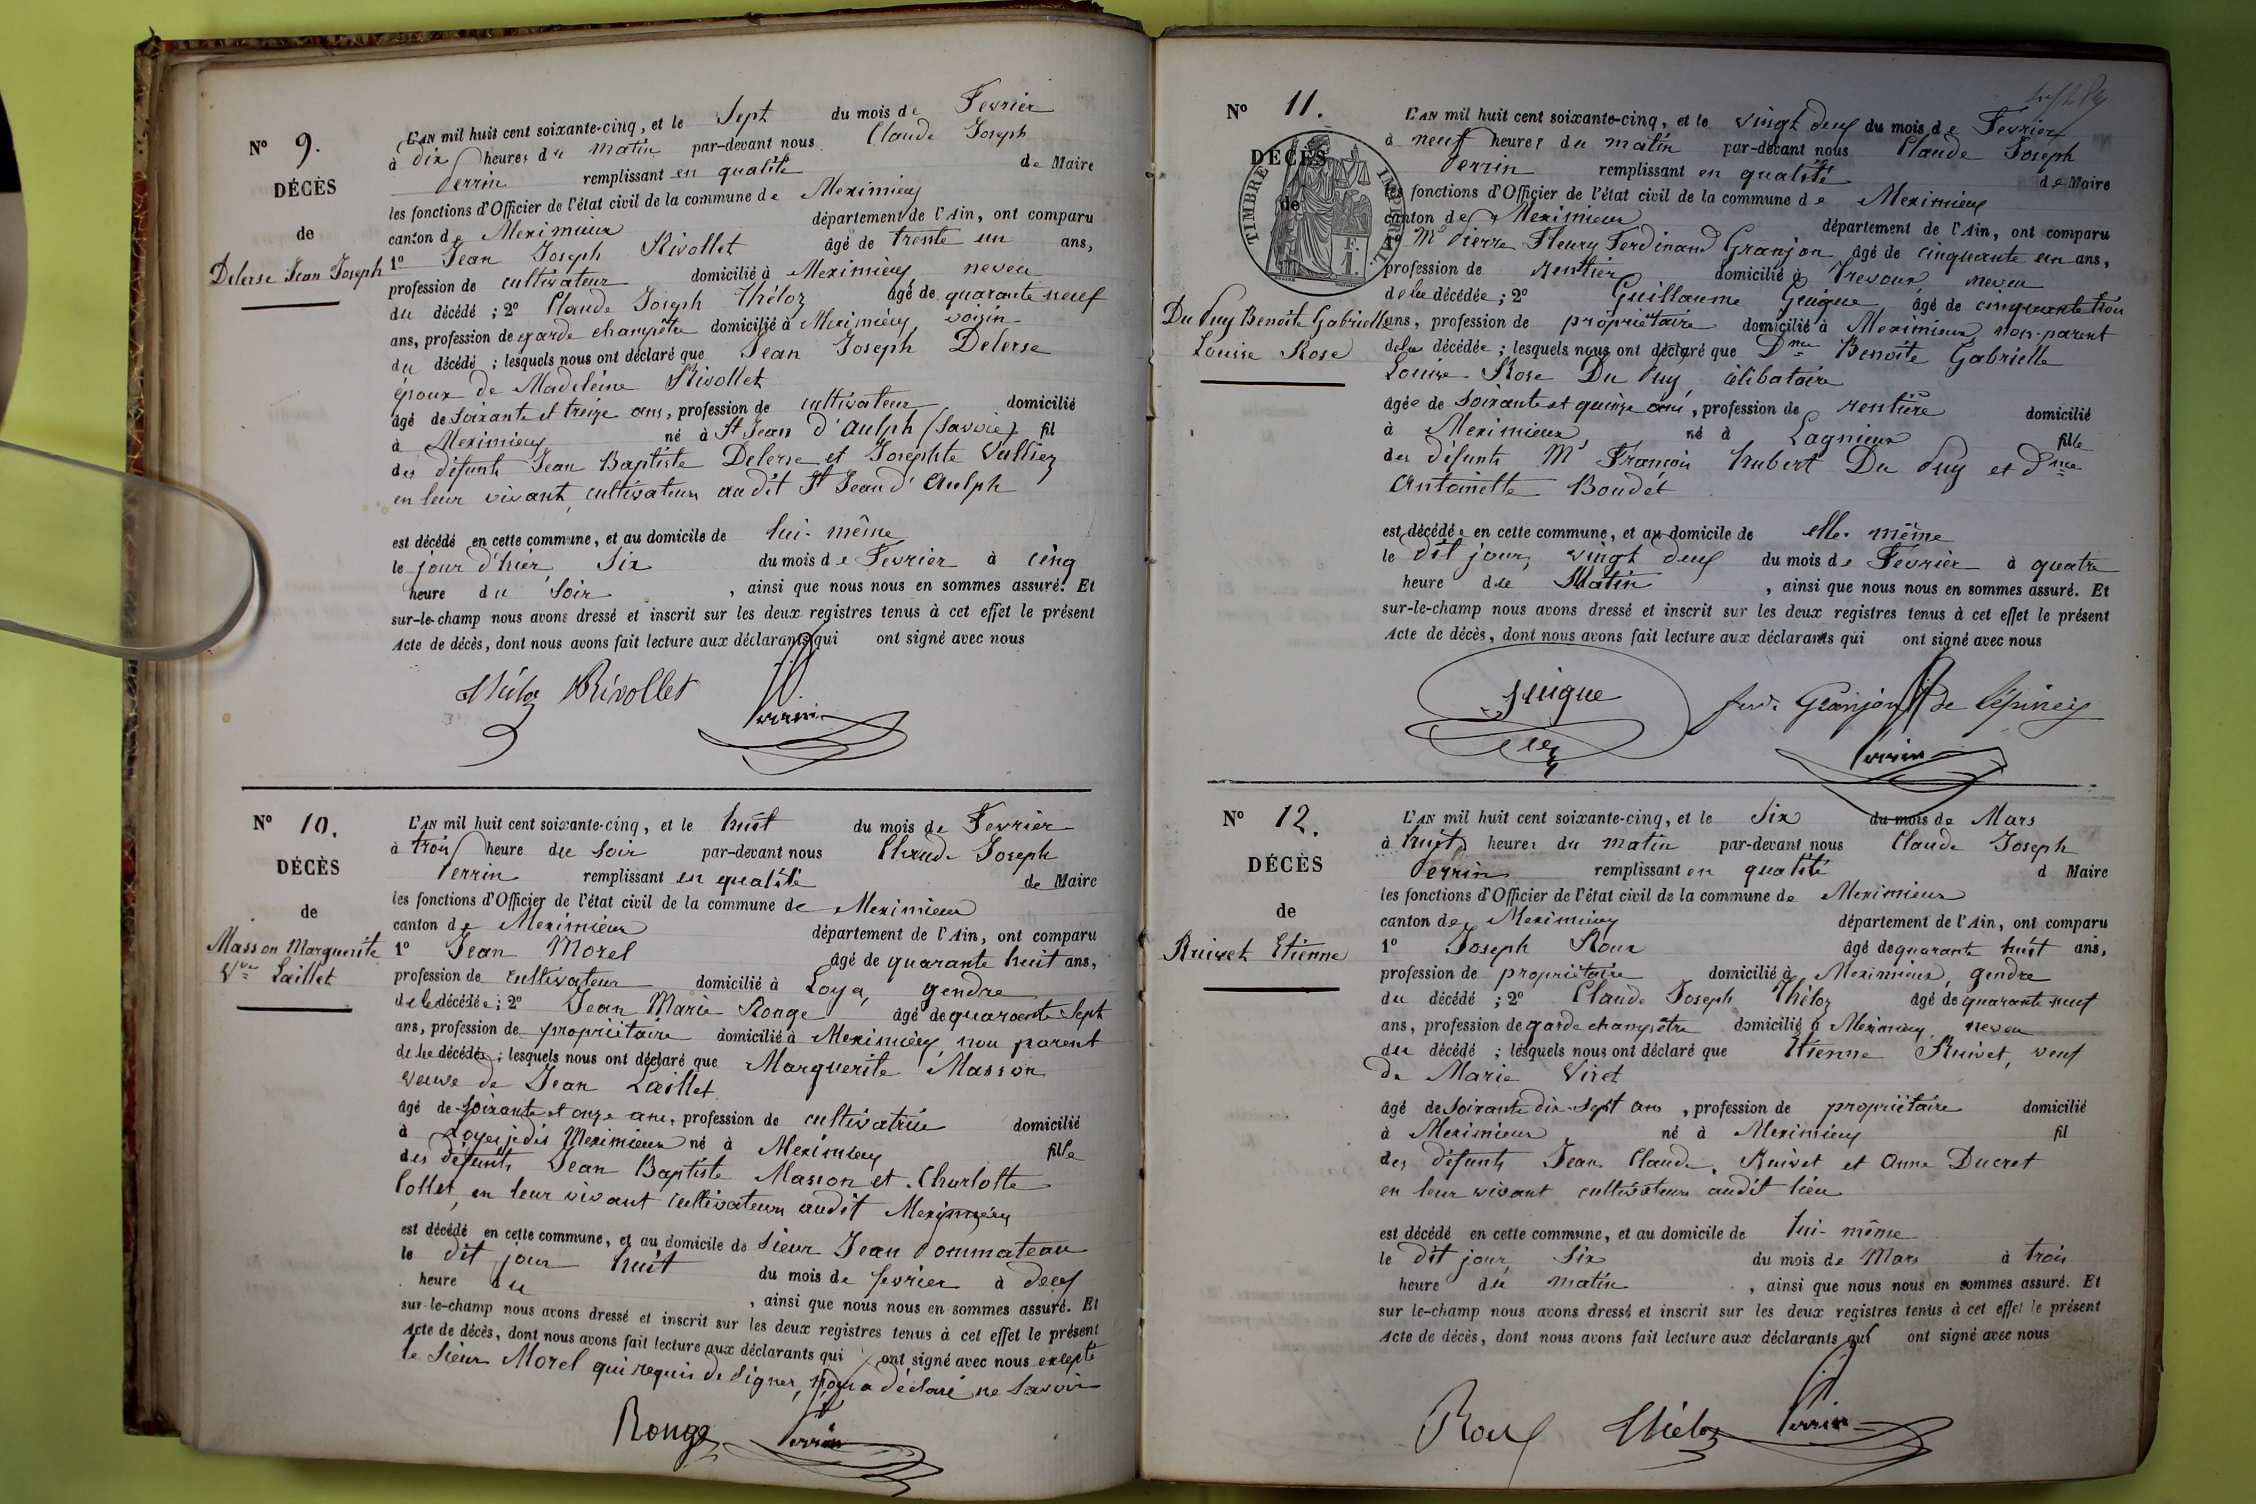 N° 9.
DÉCÈS
de
Delerse Jean Joseph
L'AN mil huit cent soixante-cinq, et le Sept du mois de Fevrier
à dix heures du matin par-devant nous Claude Joseph
Perrin remplissant en qualité de Maire
les fonctions d'Officier de l'état civil de la commune de Meximieux
canton de Meximieux département de l'Ain, ont comparu
1° Jean Joseph Rivollet âgé de trente un ans,
profession de cultivateur domicilié à Meximieux neveu
du décédé ; 2° Claude Joseph Théloz âgé de quarante neuf
ans, profession de garde champêtre domicilié à Meximieux, voisin
du décédé ; lesquels nous ont déclaré que Jean Joseph Delerse
époux de Madeleine Rivollet
âgé de soixante et treize ans, profession de cultivateur domicilié
à Meximieux né à St Jean d'Aulph (Savoie) fil
des défunts Jean Baptiste Delerse et Josephte Vulliez
en leur vivant, cultivateurs audit St Jean d'Aulph
est décédé en cette commune, et au domicile de lui-même
le jour d'hier, Six du mois de Fevrier à cinq
heure du Soir , ainsi que nous nous en sommes assuré. Et
sur-le-champ nous avons dressé et inscrit sur les deux registres tenus à cet effet le présent
Acte de décès, dont nous avons fait lecture aux déclarants qui ont signé avec nous
Théloz Rivollet
Perrin
N° 10.
DÉCÈS
de
Masson Marguerite
Vve Laillet
L'AN mil huit cent soixante-cinq, et le huit du mois de Fevrier
à trois heure du soir par-devant nous Claude Joseph
Perrin remplissant en qualité de Maire
les fonctions d'Officier de l'état civil de la commune de Meximieux
canton de Meximieux département de l'Ain, ont comparu
1° Jean Morel âgé de quarante huit ans,
profession de cultivateur domicilié à Loyes, gendre
de la décédée ; 2° Jean Marie Ronge âgé de quarante Sept
ans, profession de propriétaire domicilié à Meximieux, non parent
de la décédée ; lesquels nous ont déclaré que Marguerite Masson
veuve de Jean Laillet
âgé de soixante et onze ans, profession de cultivatrice domicilié
à Loyes jadis Meximieux né à Meximieux fille
des défunts Jean Baptiste Masson et Charlotte
Collet, en leur vivant cultivateurs audit Meximieux
est décédé en cette commune, et au domicile de Sieur Jean Pommateau
le dit jour huit du mois de fevrier à deux
heure du , ainsi que nous nous en sommes assuré. Et
sur-le-champ nous avons dressé et inscrit sur les deux registres tenus à cet effet le présent
Acte de décès, dont nous avons fait lecture aux déclarants qui ont signé avec nous excepté
le Sieur Morel qui requis de signer, nous a déclaré ne savoir
Ronge Perrin
N° 11.
DÉCÈS
de
TIMBRE IMPÉRIAL
Du Puy Benoîte Gabrielle
Louise Rose
L'AN mil huit cent soixante-cinq, et le vingt deux du mois de Fevrier
à neuf heures du matin par-devant nous Claude Joseph
Perrin remplissant en qualité de Maire
les fonctions d'Officier de l'état civil de la commune de Meximieux
canton de Meximieux département de l'Ain, ont comparu
1° Mr Pierre Fleury Ferdinand Granjon âgé de cinquante un ans,
profession de rentier domicilié à Trevoux, neveu
de la décédée ; 2° Guillaume Guigue âgé de cinquante trois
ans, profession de propriétaire domicilié à Meximieux, non-parent
de la décédée ; lesquels nous ont déclaré que Dme Benoîte Gabrielle
Louise Rose Du Puy, célibataire
âgée de soixante et quinze ans, profession de rentière domicilié
à Meximieux, né à Lagnieux fille
des défunts Mr François Hubert Du Puy et Dme
Antoinette Boudet
est décédée en cette commune, et au domicile de elle-même
le dit jour, vingt deux du mois de Fevrier à quatre
heure du Matin , ainsi que nous nous en sommes assuré. Et
sur-le-champ nous avons dressé et inscrit sur les deux registres tenus à cet effet le présent
Acte de décès, dont nous avons fait lecture aux déclarants qui ont signé avec nous
Guigue ferd. Granjon de Lépiney
Perrin
N° 12.
DÉCÈS
de
Ruivet Etienne
L'AN mil huit cent soixante-cinq, et le Six du mois de Mars
à huit heures du matin par-devant nous Claude Joseph
Perrin remplissant en qualité d Maire
les fonctions d'Officier de l'état civil de la commune de Meximieux
canton de Meximieux département de l'Ain, ont comparu
1° Joseph Roux âgé de quarante huit ans,
profession de propriétaire domicilié à Meximieux, gendre
du décédé ; 2° Claude Joseph Théloz âgé de quarante neuf
ans, profession de garde champêtre domicilié à Meximieux, neveu
du décédé ; lesquels nous ont déclaré que Etienne Ruivet, veuf
de Marie Viret
âgé de soixante dix-sept ans , profession de propriétaire domicilié
à Meximieux né à Meximieux fil
des défunts Jean Claude Ruivet et Anne Ducret
en leur vivant cultivateurs audit lieu
est décédé en cette commune, et au domicile de lui-même
le dit jour, Six du mois de Mars à trois
heure du matin , ainsi que nous nous en sommes assuré. Et
sur le-champ nous avons dressé et inscrit sur les deux registres tenus à cet effet le présent
Acte de décès, dont nous avons fait lecture aux déclarants qui ont signé avec nous
Roux Théloz Perrin